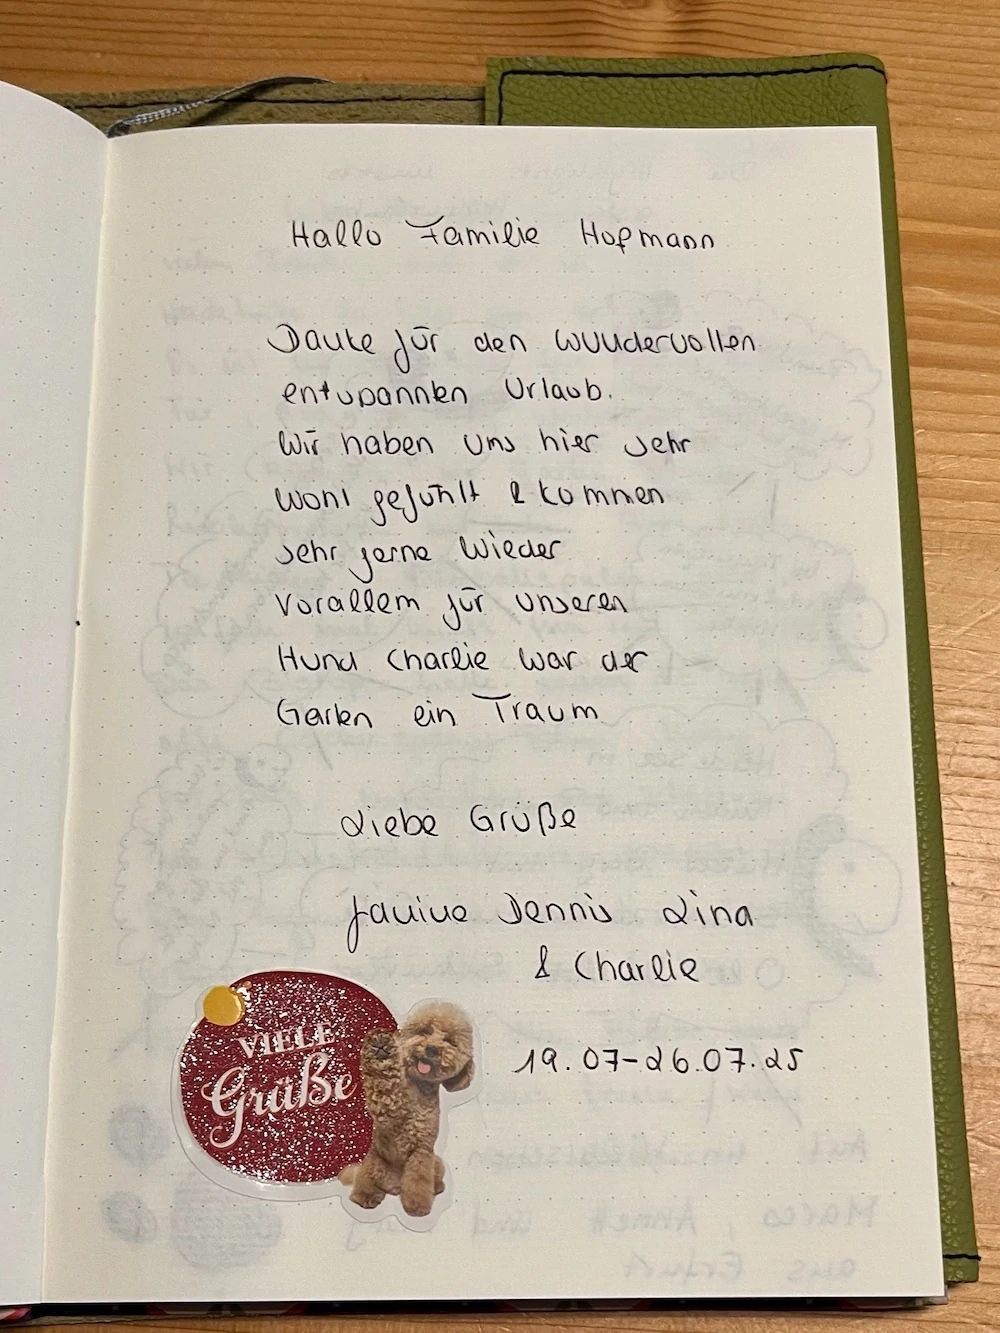 Hallo Familie Hofmann
Danke für den wundervollen
entspannten Urlaub.
Wir haben uns hier sehr
wohl gefühlt & kommen
sehr gerne wieder
vorallem für unseren
Hund Charlie war der
Garten ein Traum
Liebe Grüße
Janine Dennis Lina
& Charlie
19.07-26.07.25
VIELE
Grüße